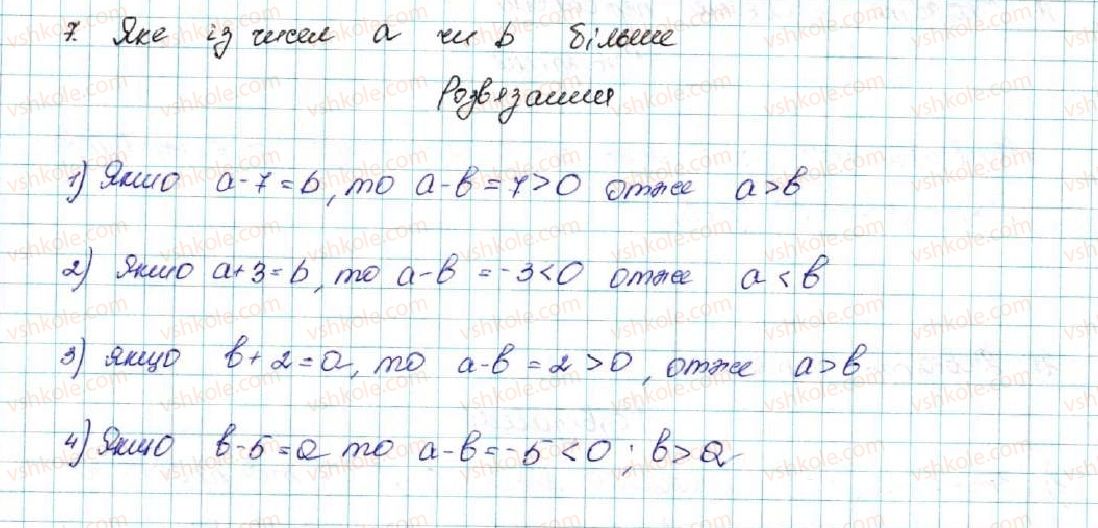 7. Яке із чисел a чи b більше
Розвязання
1) Якшо a-7=b, то a-b=7>0 отже a>b
2) якшо a+3=b, то a-b=-3<0 отже a<b
3) якщо b+2=a, то a-b=2>0, отже a>b
4) Якшо b-5=a то a-b=-5<0; b>a